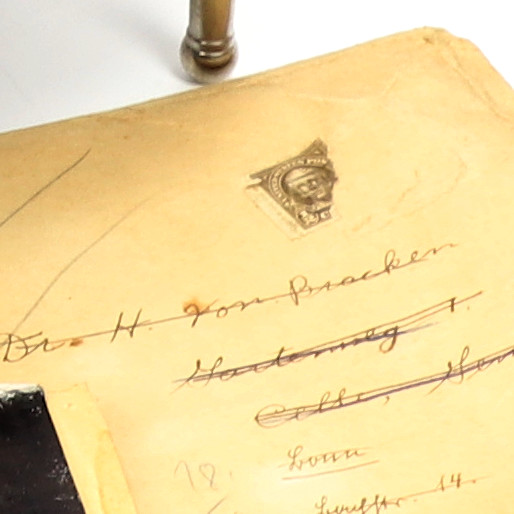 Dr. H. von Bracken
Gartenweg 1.
Celle,
18.
Bonn
14.